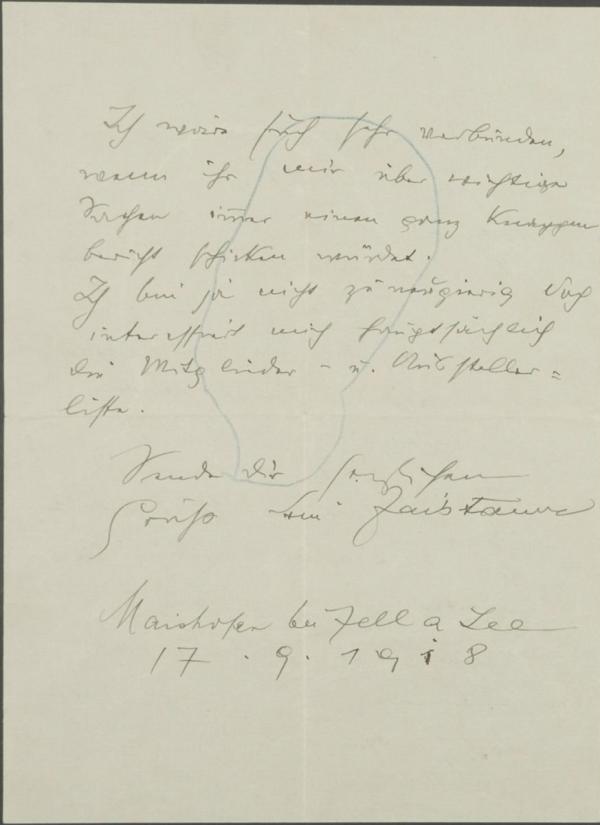 Ich wäre Euch sehr verbunden,
wenn ihr mir über wichtige
Sachen immer einen ganz Knappen
bericht schicken würdet.
Ich bin ja nicht zu neugierig doch
interessiert mich hauptsächlich
die Mitglieder - u. Aussteller=
liste.
Sende Dir herzlichen
Gruß dein Faistauer
Maishofen bei Zell a See
17 . 9 . 1918